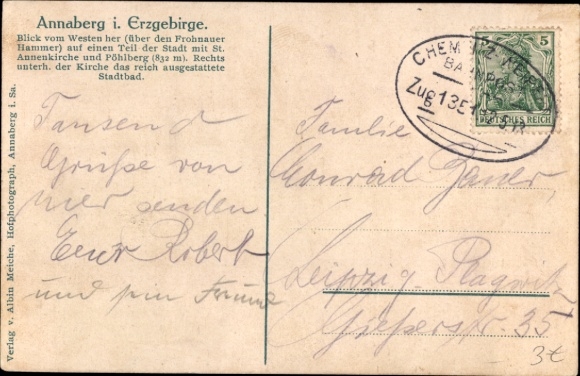 Annaberg i. Erzgebirge.
Blick vom Westen her (über den Frohnauer
Hammer) auf einen Teil der Stadt mit St.
Annenkirche und Pöhlberg (832 m). Rechts
unterh. der Kirche das reich ausgestattete
Stadtbad.
Verlag v. Albin Meiche, Hofphotograph, Annaberg i. Sa.
Tausend
Grüße von
hier senden
Euer Robert
und sein Freund
CHEMNITZ
BAHNPOST
Zug 1351
5
DEUTSCHES REICH
Familie
Conrad Bauer,
Leipzig-Plagwitz
Gießerstr. 35
3€